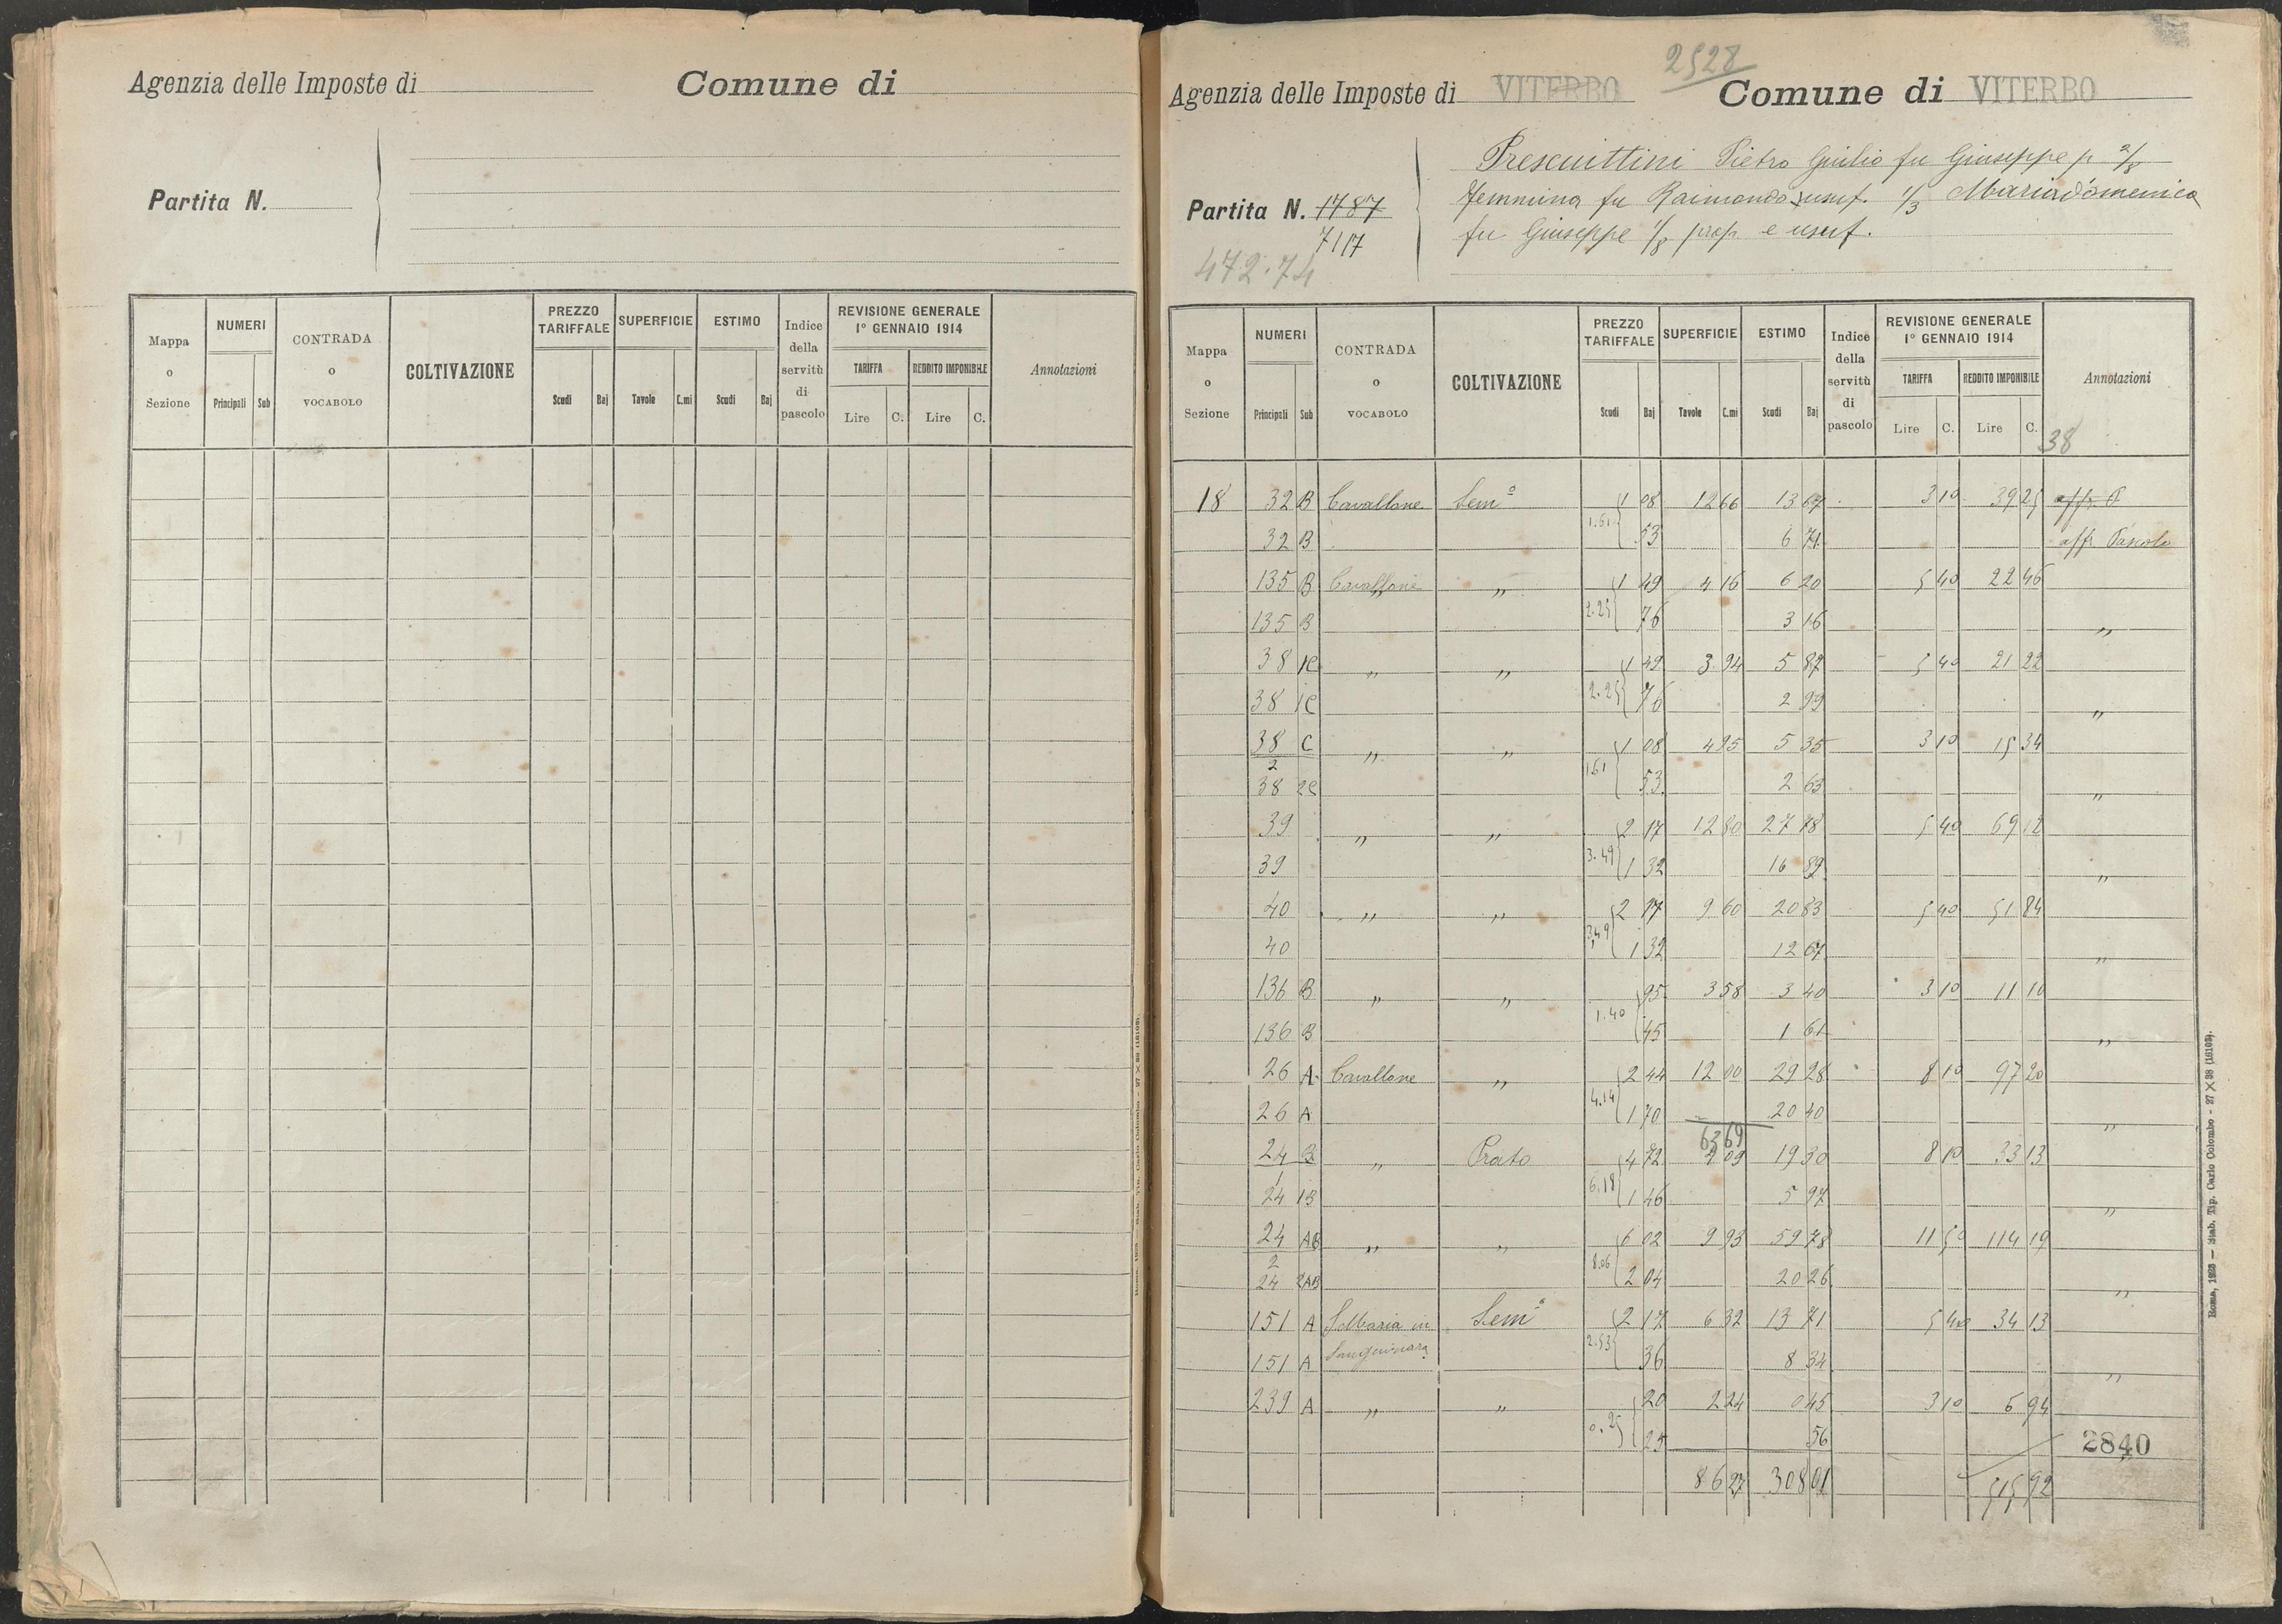 Agenzia delle Imposte di Comune di
Partita N.
Mappa o Sezione NUMERI Principali Sub CONTRADA o VOCABOLO COLTIVAZIONE PREZZO TARIFFALE Scudi Baj SUPERFICIE Tavole C.mi ESTIMO Scudi Baj Indice della servitù di pascolo REVISIONE GENERALE 1° GENNAIO 1914 TARIFFA Lire C. REDDITO IMPONIBILE Lire C. Annotazioni
2528
Agenzia delle Imposte di VITERBO Comune di VITERBO
Pietro Giulio fu Giuseppe p 2/8
Partita N. 1787 fu Raimondo usuf. 1/3 Mariadomenica
7117 fu Giuseppe 1/8 prop. e usuf.
472.74
Mappa o Sezione NUMERI Principali Sub CONTRADA o VOCABOLO COLTIVAZIONE PREZZO TARIFFALE Scudi Baj SUPERFICIE Tavole C.mi ESTIMO Scudi Baj Indice della servitù di pascolo REVISIONE GENERALE 1° GENNAIO 1914 TARIFFA Lire C. REDDITO IMPONIBILE Lire C. Annotazioni
38
18 32 B Cavallone Sem° 1 08 12 66 13 67 3 10 39 25 affr. P
1.61
32 B 53 6 71 affr. Pascolo
135 B Cavallone " 1 49 4 16 6 20 5 40 22 46
2.25
135 B 76 3 16 "
38 1C " " 1 49 3 94 5 87 5 40 21 22
2.25
38 1C 76 2 99 "
38/2 C " " 1 08 4 95 5 35 3 10 15 34
1.61
38 2C 53 2 63 "
39 " " 2 17 12 80 27 78 5 40 69 12
3.49
39 1 32 16 89 "
40 " " 2 17 9 60 20 83 5 40 51 84
3.49
40 1 32 12 67 "
136 B " " 95 3 58 3 40 3 10 11 10
1.40
136 B 45 1 61 "
26 A Cavallone " 2 44 12 00 29 28 8 10 97 20
4.14
26 A 1 70 20 40 "
63 69
24/1 B " Prato 4 72 4 09 19 30 8 10 33 13
6.18
24 1B 1 46 5 97 "
24/2 AB " " 6 02 9 93 59 78 11 50 114 19
8.06
24 2AB 2 04 20 26 "
151 A S. Maria in Sem° 2 17 6 32 13 71 5 40 34 13
2.53
151 A Sanguinara 36 8 34 "
239 A " " 20 2 24 0 45 3 10 6 94
0.25
25 56 2840
86 27 308 01 515 92
Roma, 1923 — Stab. Tip. Carlo Colombo - 27 X 38 (16103).